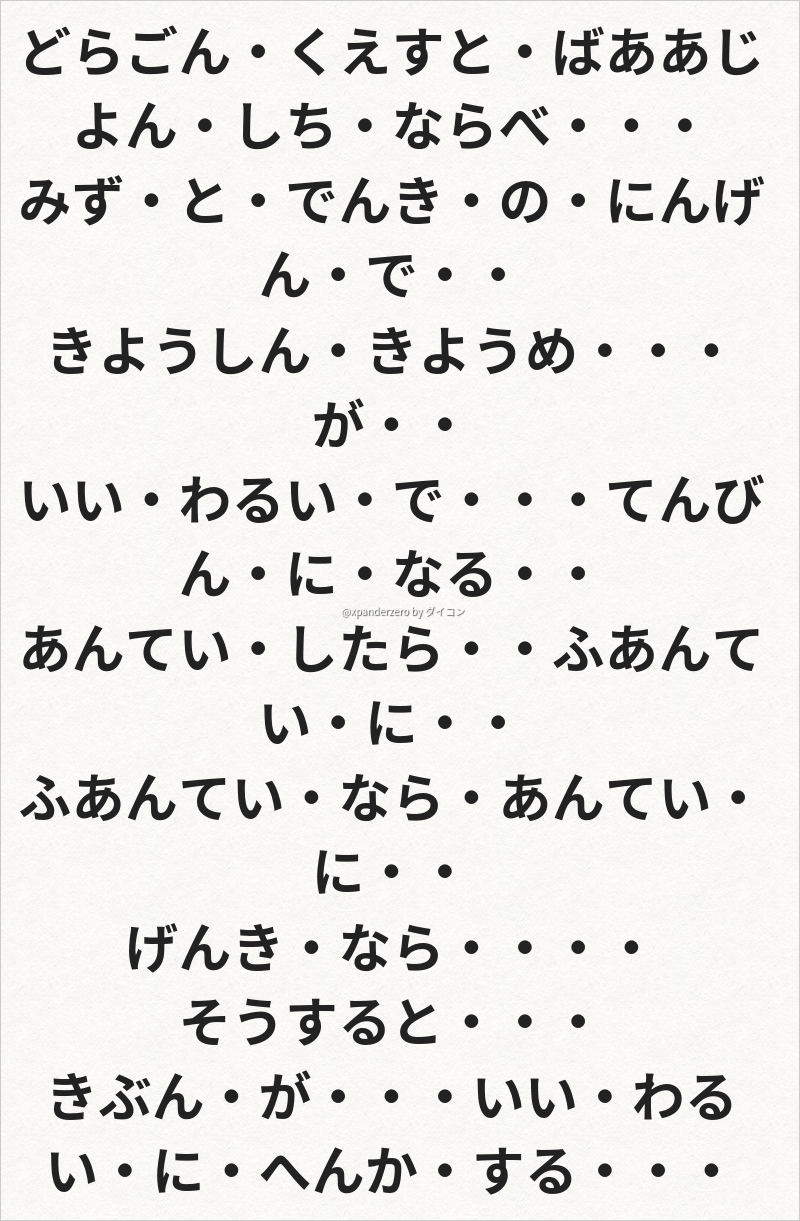 どらごん・くえすと・ばああじ
よん・しち・ならべ・・・
みず・と・でんき・の・にんげ
ん・で・・
きようしん・きようめ・・・
が・・
いい・わるい・で・・・てんび
ん・に・なる・・
@xpanderzero by ダイコン
あんてい・したら・・ふあんて
い・に・・
ふあんてい・なら・あんてい・
に・・
げんき・なら・・・・
そうすると・・・
きぶん・が・・・いい・わる
い・に・へんか・する・・・